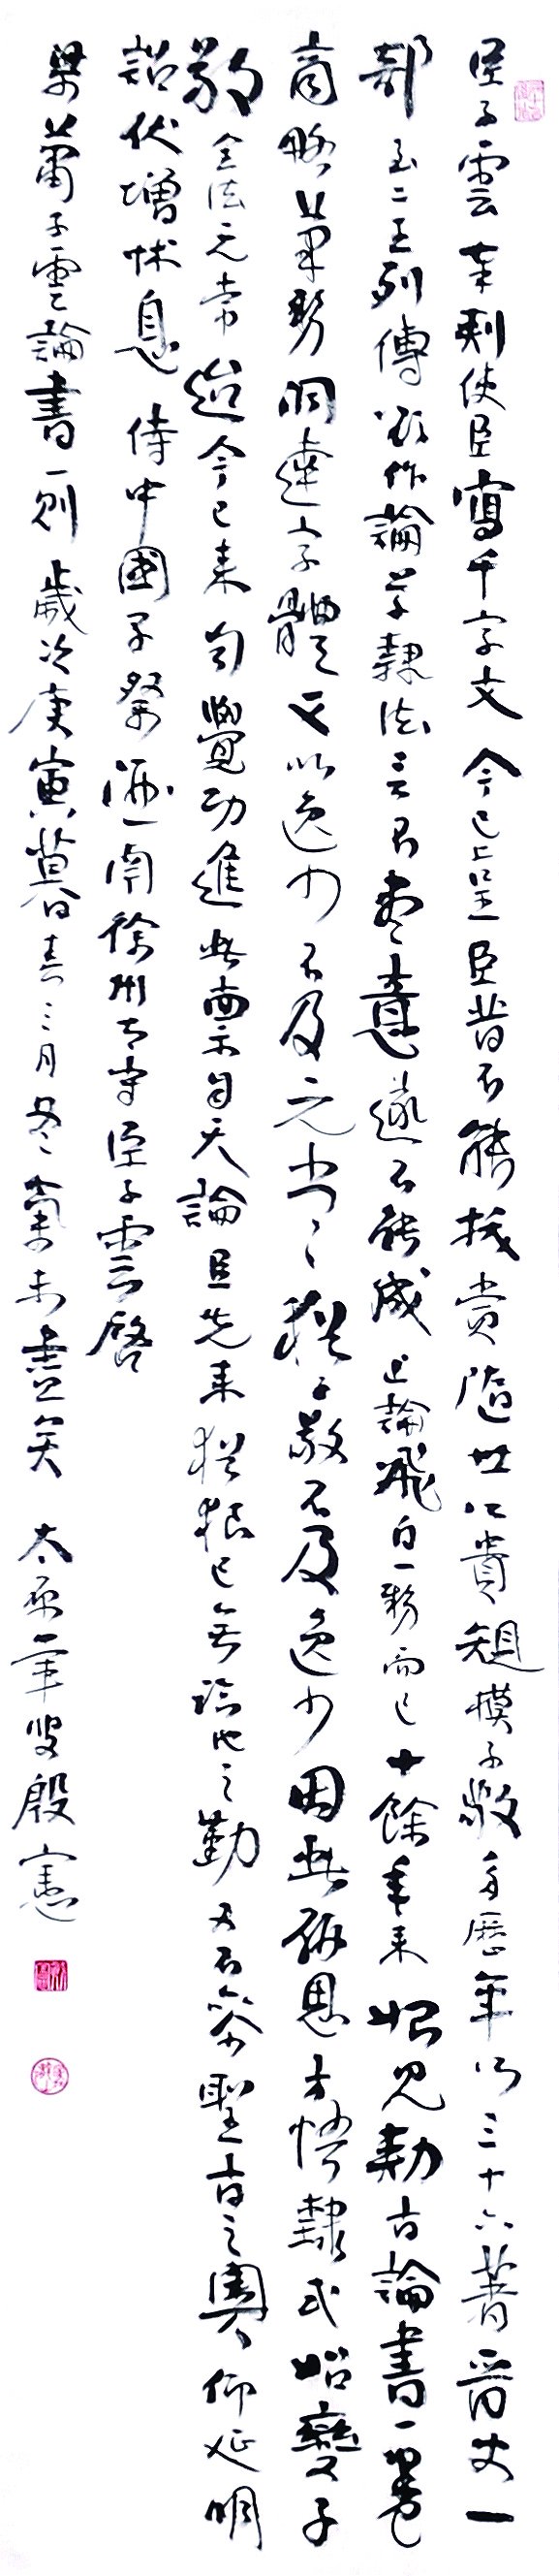 臣子雲奉敕使臣寫千字文今已上呈臣昔不能拔賞隨世所貴規模子敬多歷年所三十六著晉史一
部至二王列傳欲作論草隸法言不盡意遂不能成止論飛白一勢而已十餘年來始見敕旨論書一卷
商略筆勢洞達字體又以逸少不及元常猶子敬不及逸少因此研思方悟隸式始變子
敬全法元常迨今已來自覺功進此稟自天論臣先來猶恨已無臨池之勤又不參聖旨之奧仰延明
詔伏增悚息侍中國子祭酒南徐州大守臣子雲啓
梁蕭子雲論書一則歲次庚寅暮春三月冬氣未盡矣太原筆叟殷憲